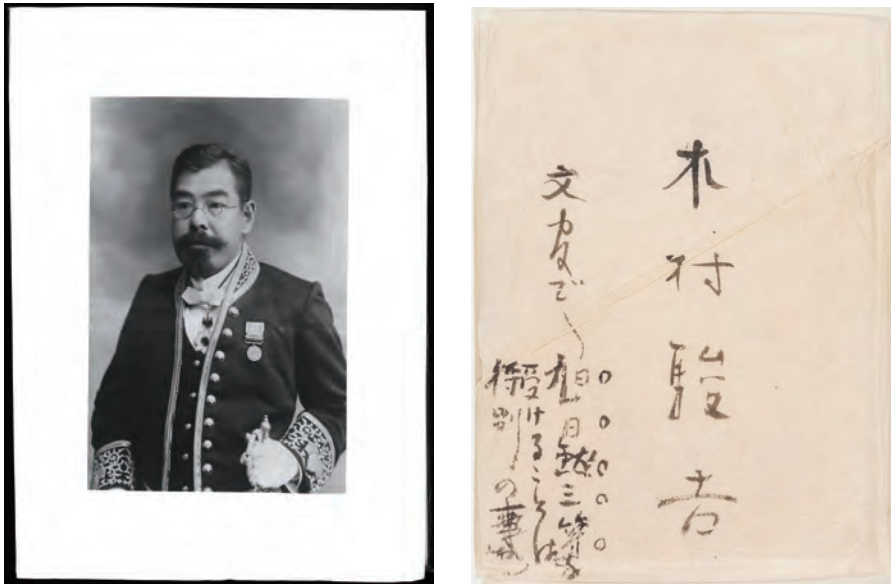 木村駿吉
文官で、旭日勲三等を
受けることは
特別の